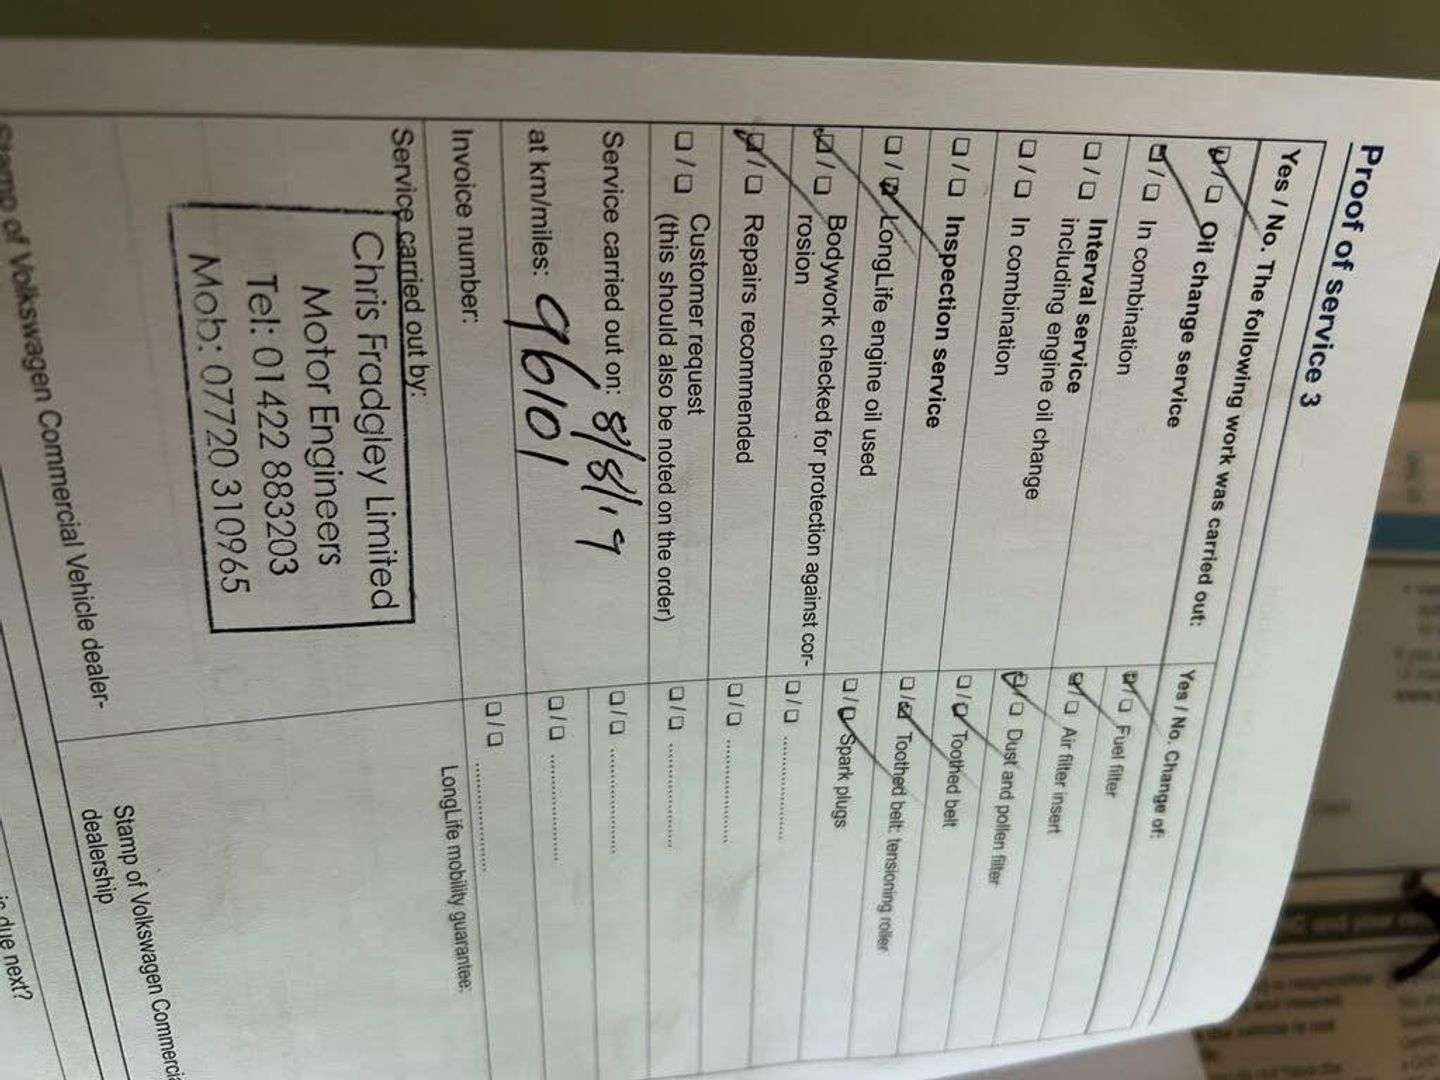 Proof of service 3
Yes / No. The following work was carried out:
☑ / ☐ Oil change service
☑ / ☐ In combination
☐ / ☐ Interval service
including engine oil change
☐ / ☐ In combination
☐ / ☐ Inspection service
☐ / ☑ LongLife engine oil used
☑ / ☐ Bodywork checked for protection against cor-
rosion
☑ / ☐ Repairs recommended
☐ / ☐ Customer request
(this should also be noted on the order)
Service carried out on: 8/8/19
at km/miles: 96101
Invoice number:
Service carried out by:
Chris Fradgley Limited
Motor Engineers
Tel: 01422 883203
Mob: 07720 310965
Stamp of Volkswagen Commercial Vehicle dealer-
Yes / No. Change of:
☑ / ☐ Fuel filter
☑ / ☐ Air filter insert
☑ / ☐ Dust and pollen filter
☐ / ☑ Toothed belt
☐ / ☑ Toothed belt: tensioning roller
☐ / ☑ Spark plugs
☐ / ☐ ...............
☐ / ☐ ...............
☐ / ☐ ...............
☐ / ☐ ...............
☐ / ☐ ...............
☐ / ☐ ...............
LongLife mobility guarantee:
Stamp of Volkswagen Commercia
dealership
is due next?